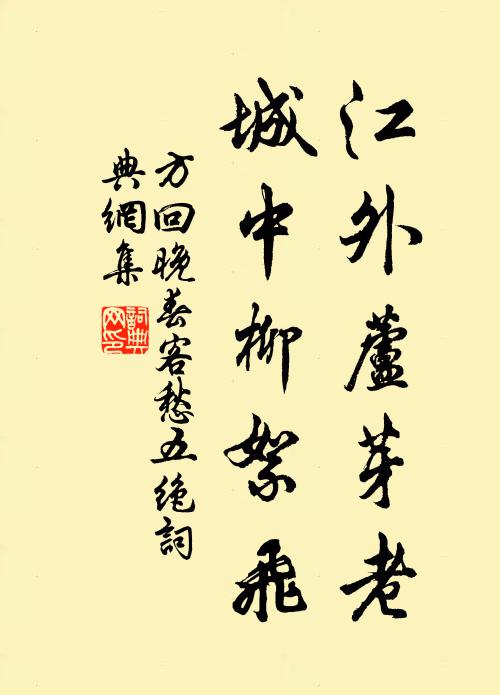 江外蘆芽老
城中柳絮飛
方回晚春客愁五絶詞
典網集
詞典
网印